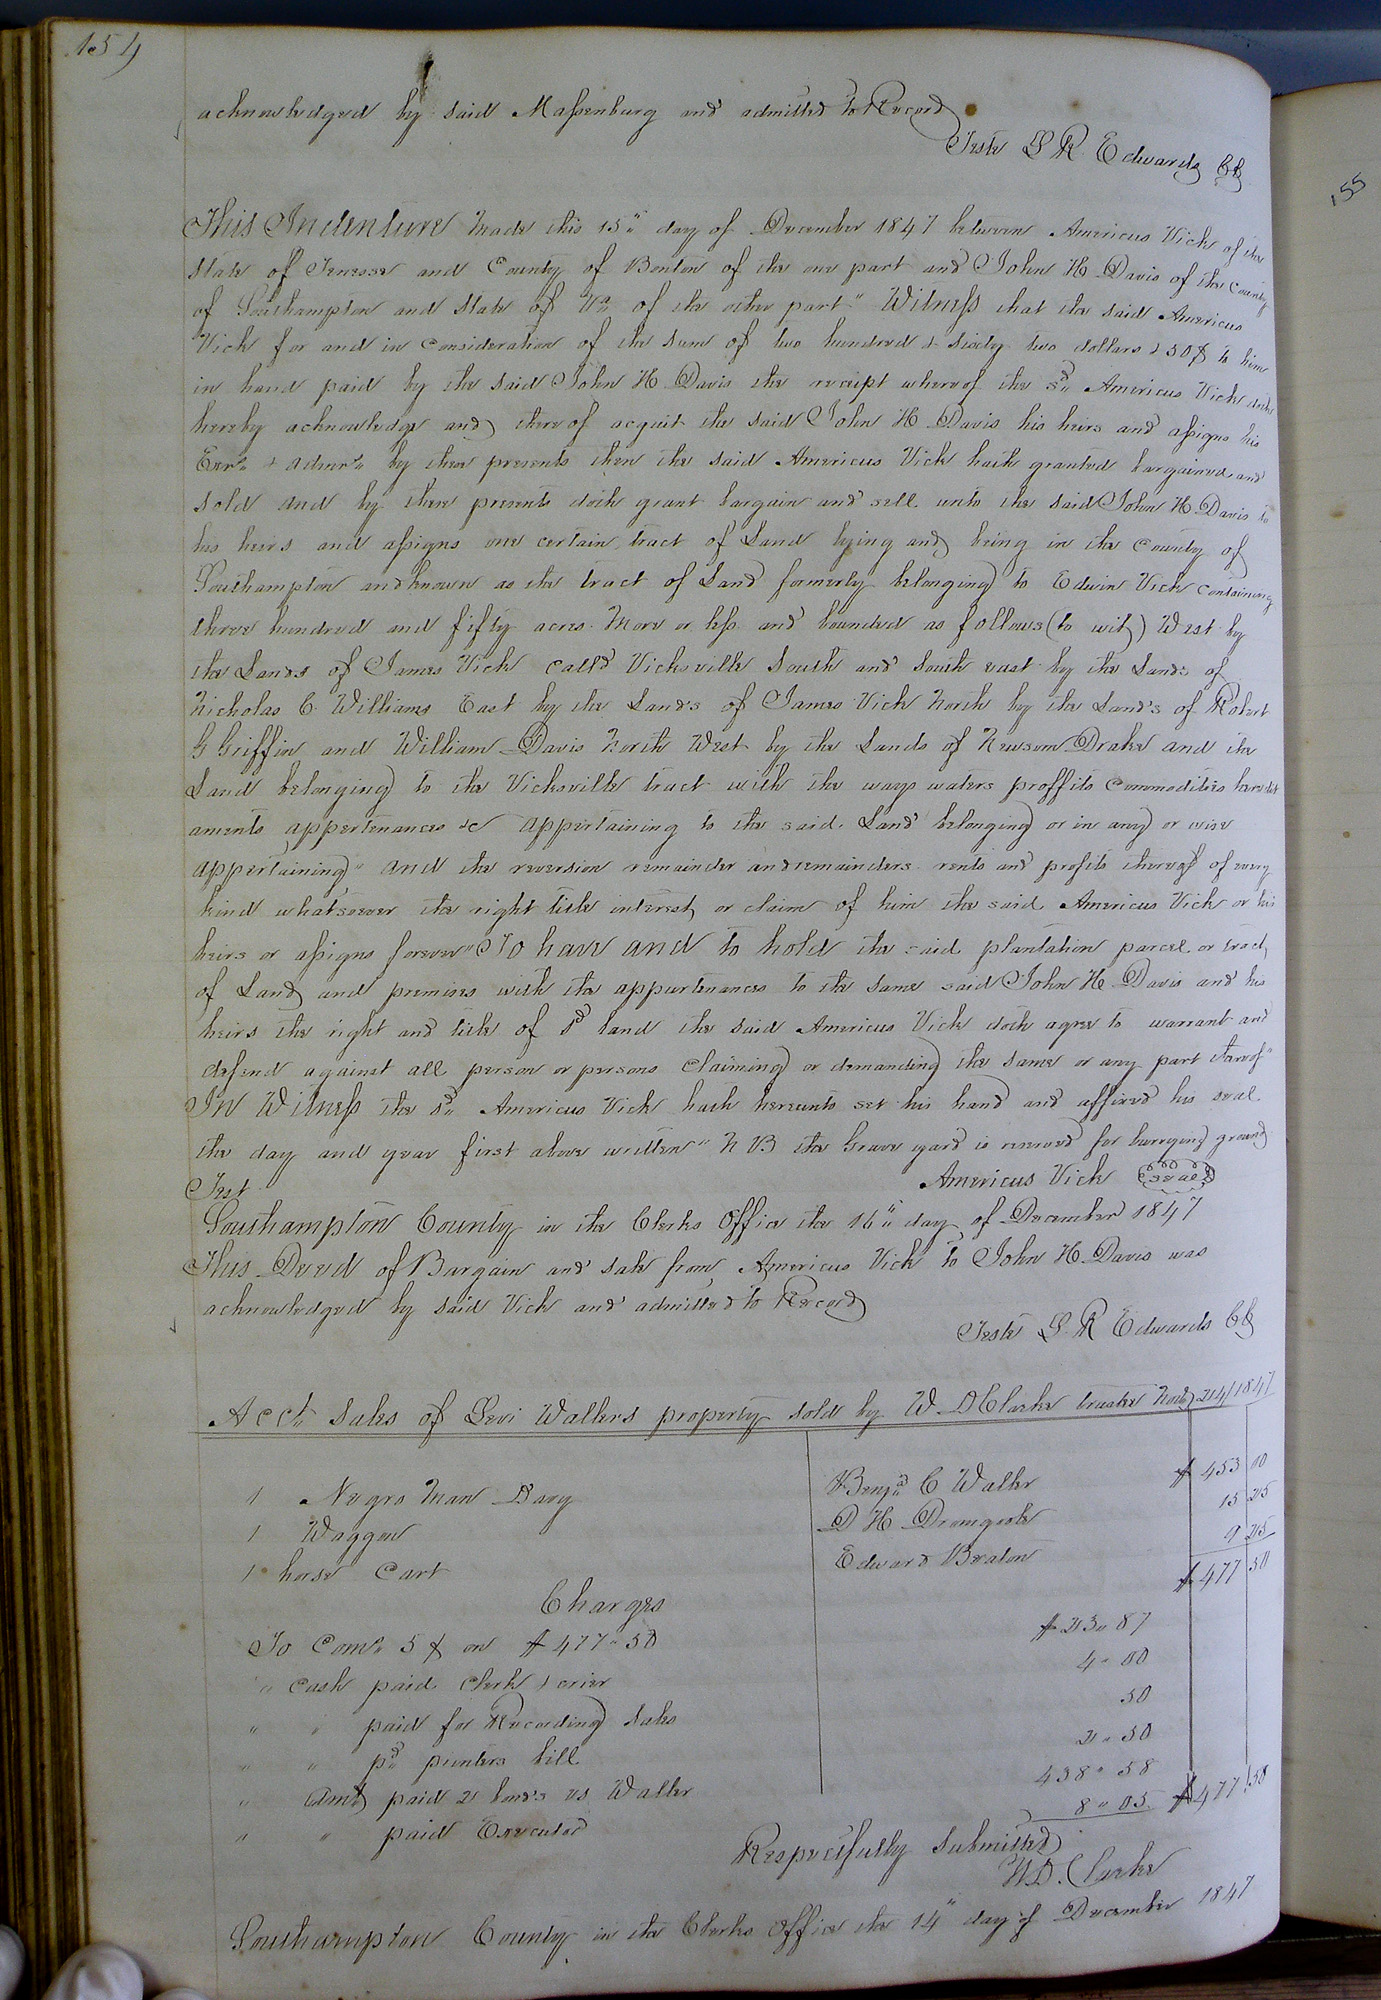 154
acknowledged by said Massenburg and admitted to Record
Teste L R Edwards CC
This Indenture Made this 15" day of December 1847 between Americus Vick of the
State of Tenessee and County of Benton of the one part and John H Davis of the County
of Southampton and State of Va of the other part" Witness that the said Americus
Vick for and in consideration of the sum of two hundred & sixty two dollars & 50 ¢ to him
in hand paid by the said John H Davis the receipt whereof the sd Americus Vick doth
hereby acknowledge and thereof acquit the said John H Davis his heirs and assigns his
Exrs & admrs by these presents then the said Americus Vick hath granted bargained and
sold and by these presents doth grant bargain and sell unto the said John H Davis to
his heirs and assigns one certain tract of Land lying and being in the County of
Southampton and known as the tract of Land formerly belonging to Edwin Vick containing
three hundred and fifty acres More or less and bounded as follows (to wit) West by
the Lands of James Vick Calld Vicksville South and South east by the Lands of
Nicholas C Williams East by the Lands of James Vick North by the Lands of Robert
G Griffin and William Davis North West by the Lands of Newsom Drake and the
Land belonging to the Vicksville tract with the ways waters proffits commodities heredit
aments appertenances &c appertaining to the said Land belonging or in any or wise
appertaining" and the reversion remainder and remainders rents and profits thereof of every
kind whatsoever the right title interest or claim of him the said Americus Vick or his
heirs or assigns forever" To have and to hold the said plantation parcel or tract
of Land and premises with the appurtenances to the same said John H Davis and his
heirs the right and title of sd land the said Americus Vick doth agree to warrant and
defend against all person or persons Claiming or demanding the same or any part thereof"
In Witness the sd Americus Vick hath hereunto set his hand and affixed his seal
the day and year first above written" N B the Grave yard is reserved for burrying ground
Test
Americus Vick Seal
Southampton County in the Clerks Office the 16" day of December 1847
This Deed of Bargain and sale from Americus Vick to John H Davis was
acknowledged by said Vick and admitted to Record
Teste L. R Edwards CC
Acct Sales of Levi Wallers property sold by W D Clarke trustee Novr 24/1847
1 Negro Man Davy Benja C Waller $ 453 00
1 Waggon D H Dromgoole 15 25
1 horse Cart Edward Beaton 9 25
$ 477 50
Charges
To Coms 5 ¢ on $ 477 " 50 $ 23 " 87
" Cash paid Clerk & crier 4 " 00
" " paid for Recording Sales 50
" " pd printers bill 2 " 50
" Amt paid 2 bonds vs Waller 438 " 58
" " paid Executed 8 " 05 $ 477 50
Respectfully Submitted
W. D. Clarke
Southampton County in the Clerks Office the 14" day of December 1847
155